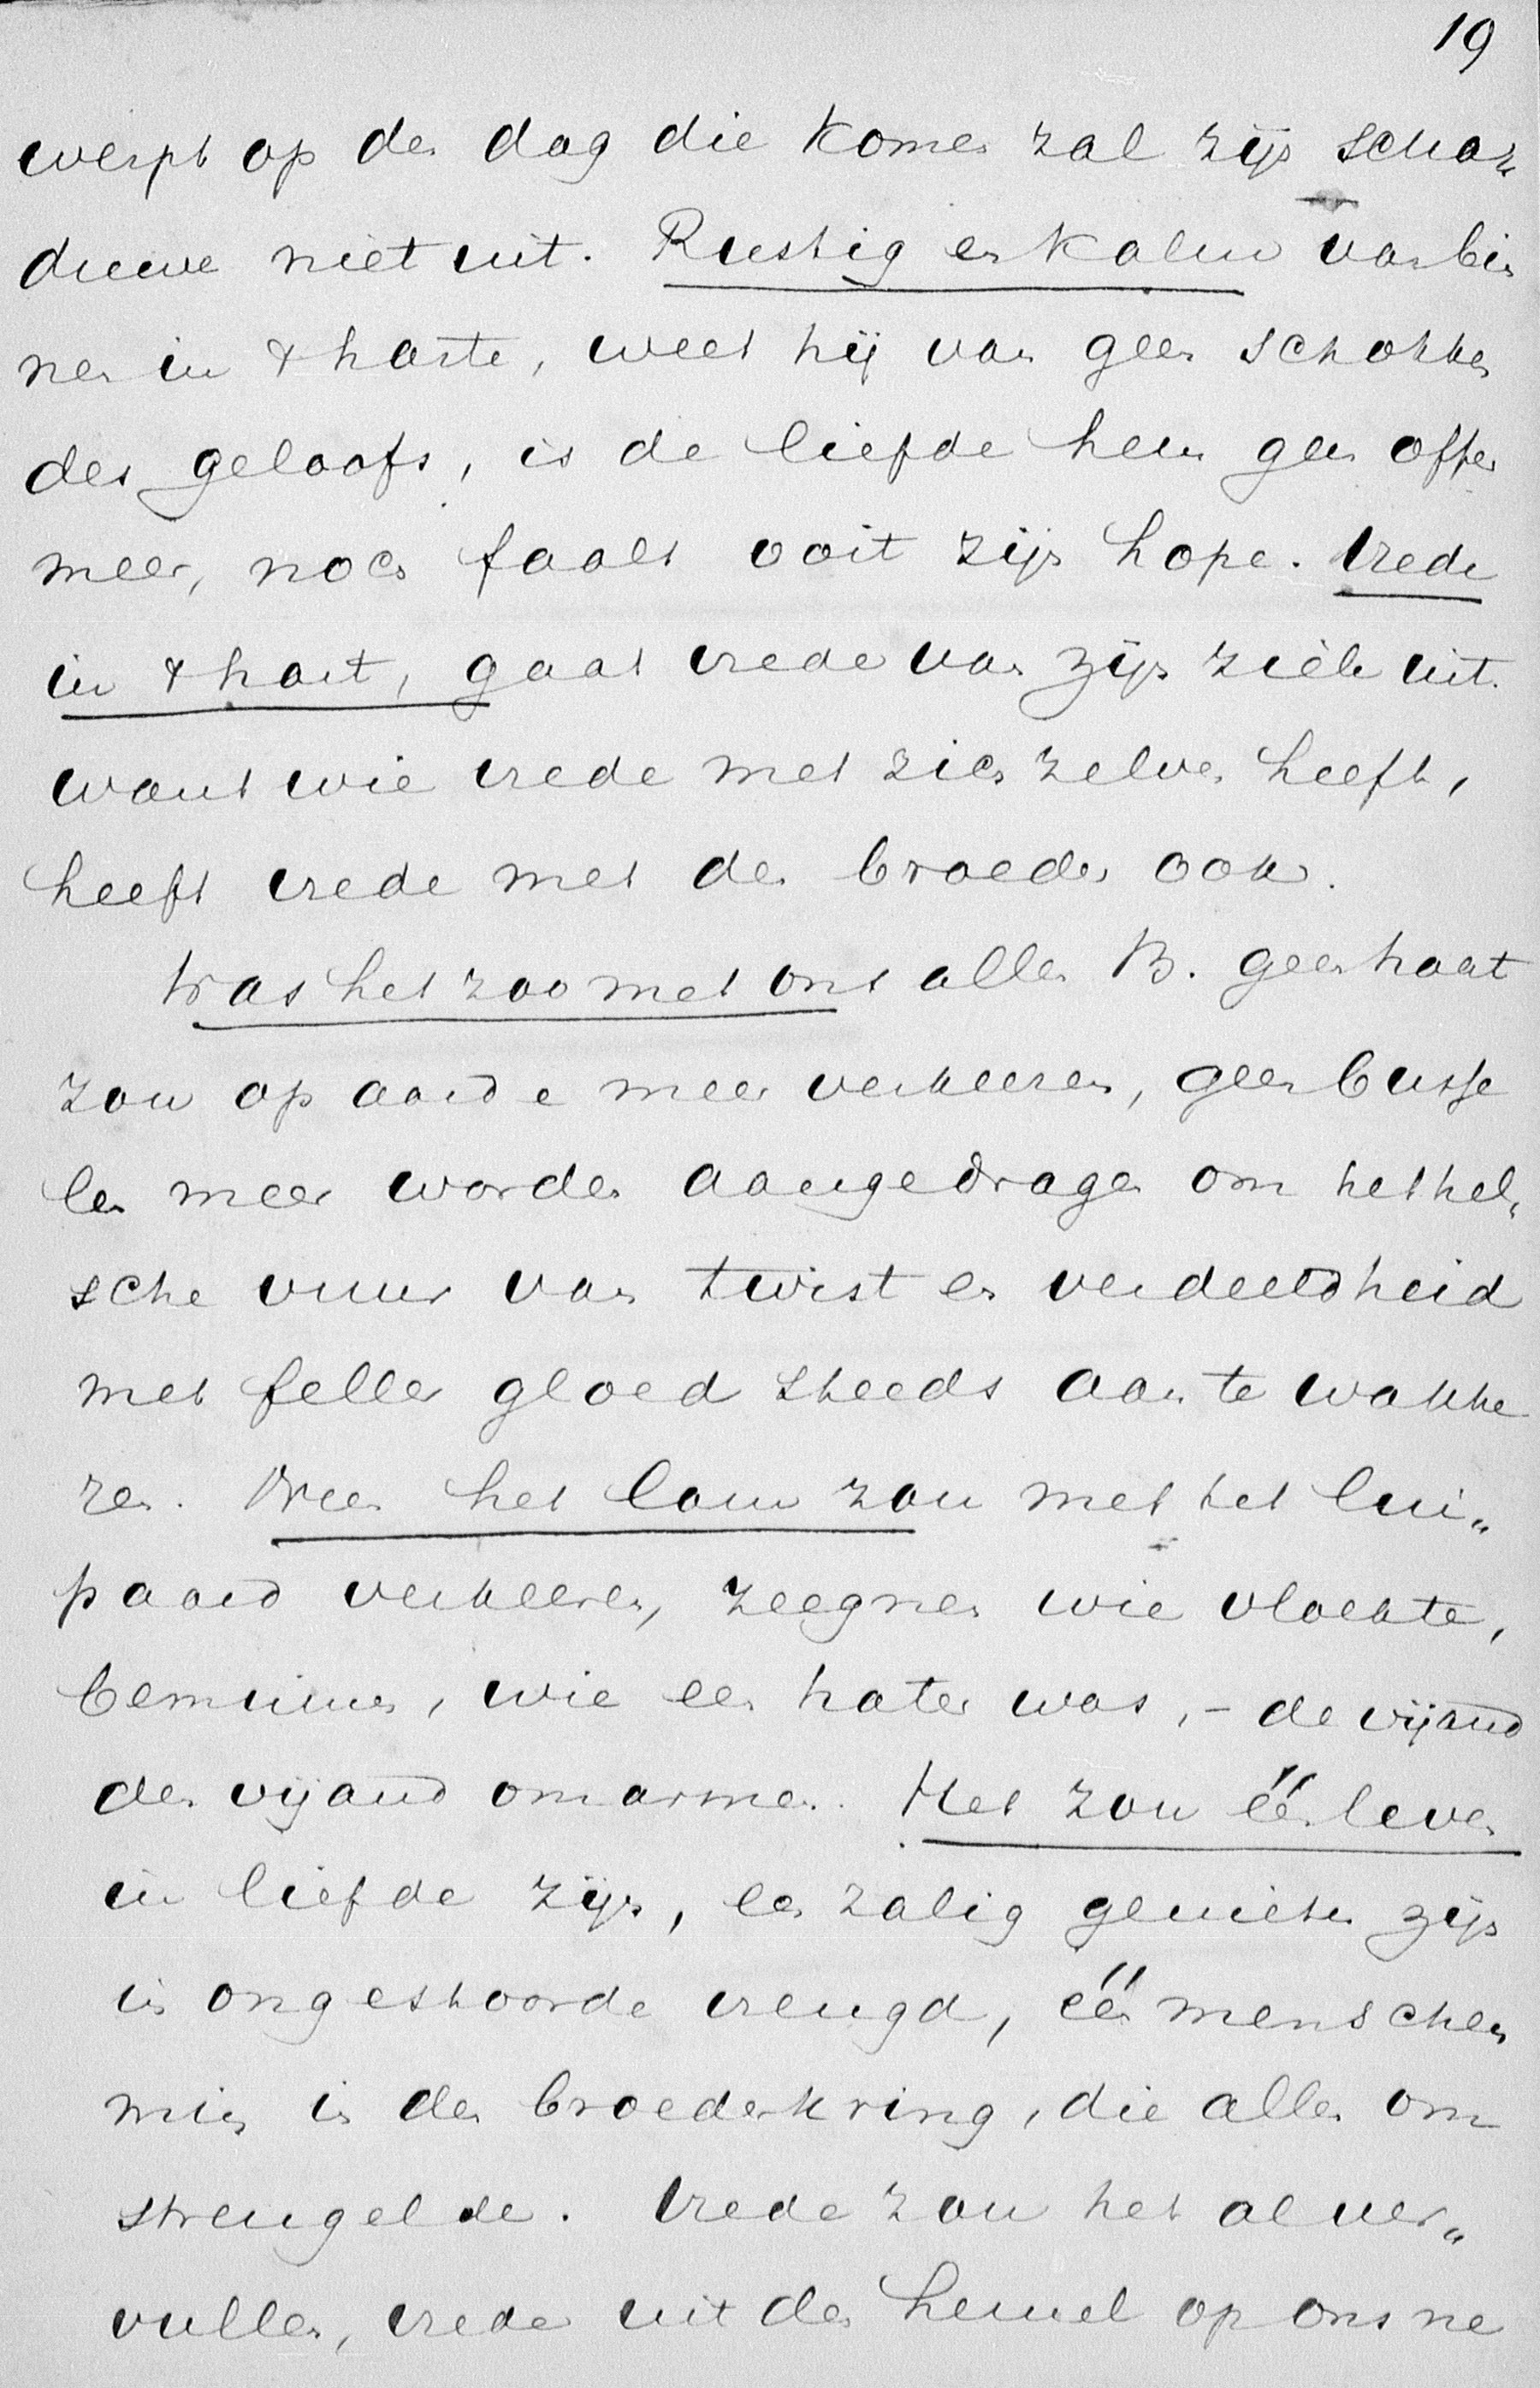 19
werpt op den dag die komen zal zijn scha„
duwe niet uit. Rustig en kalm van bin
nen in 't harte, weet hij van geen schokken
des geloofs, is de liefde hem geen offer
meer, noch faalt ooit zijn hope. Vrede
in 't hart, gaat vrede van zijn ziele uit.
want wie vrede met zich zelven heeft,
heeft vrede met den broeder ook.
Was het zoo met ons allen B. geen haat
zou op aarde meer verkeeren, geen busse
len meer worden aangedragen om het hel„
sche vuur van twist en verdeeldheid
met feller gloed steeds aan te wakke
ren. Neen het lam zou met het lui„
paard verkeeren, zeegnen wie vloekte,
beminnen, wie een hater was, – de vijand
den vijand omarmen. Het zou één leven
in liefde zijn, een zalig genieten zijn
in ongestoorde vreugd, één menschen
min in den broederkring, die allen om
strengelde. Vrede zou het al ver„
vullen, vrede uit den hemel op ons ne